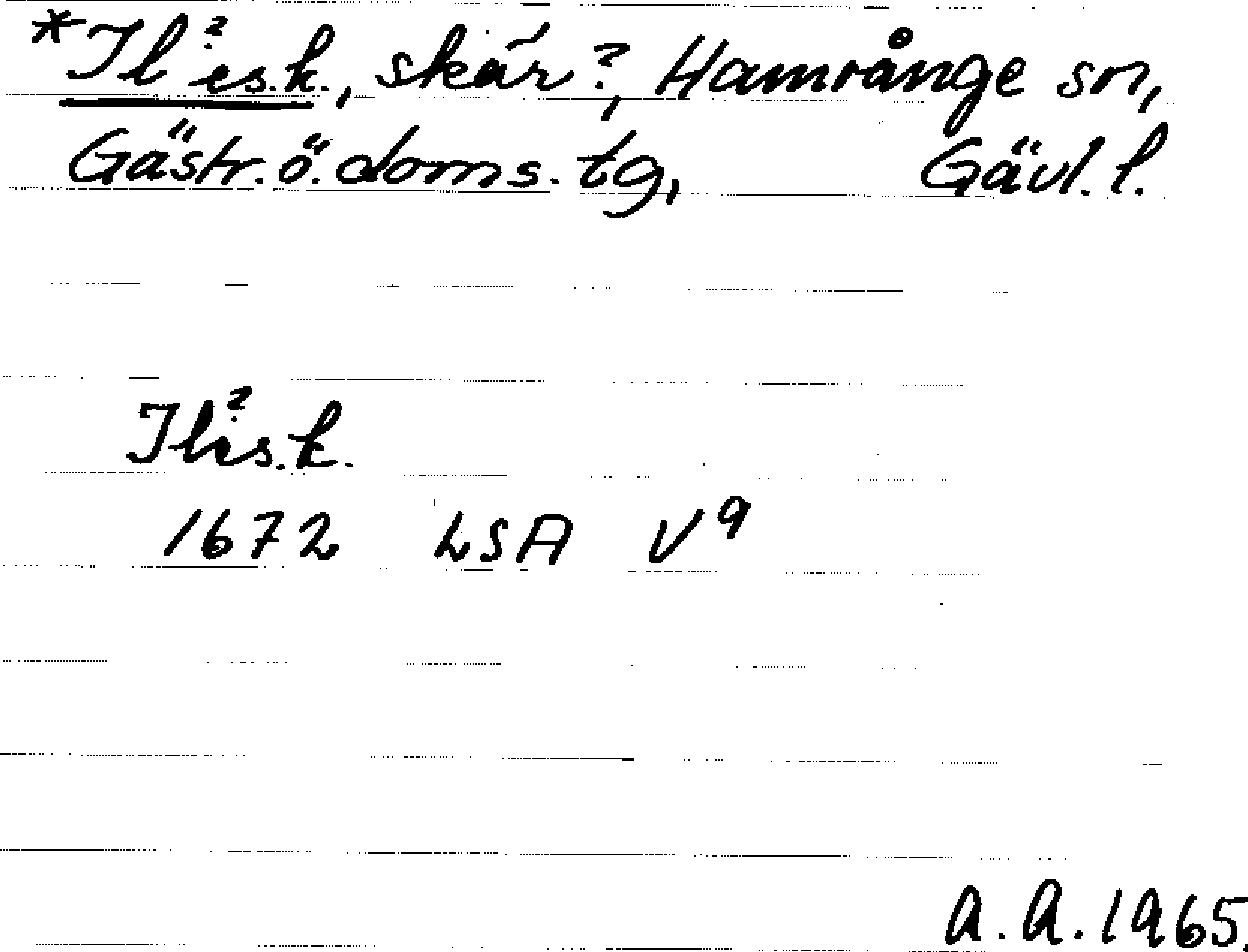 *Il?is.k., skär?, Hamrånge sn,
Gästr.ö.doms.tg, Gävl.l.
Il?is.k.
1672 LSA V9
A.A.1965.